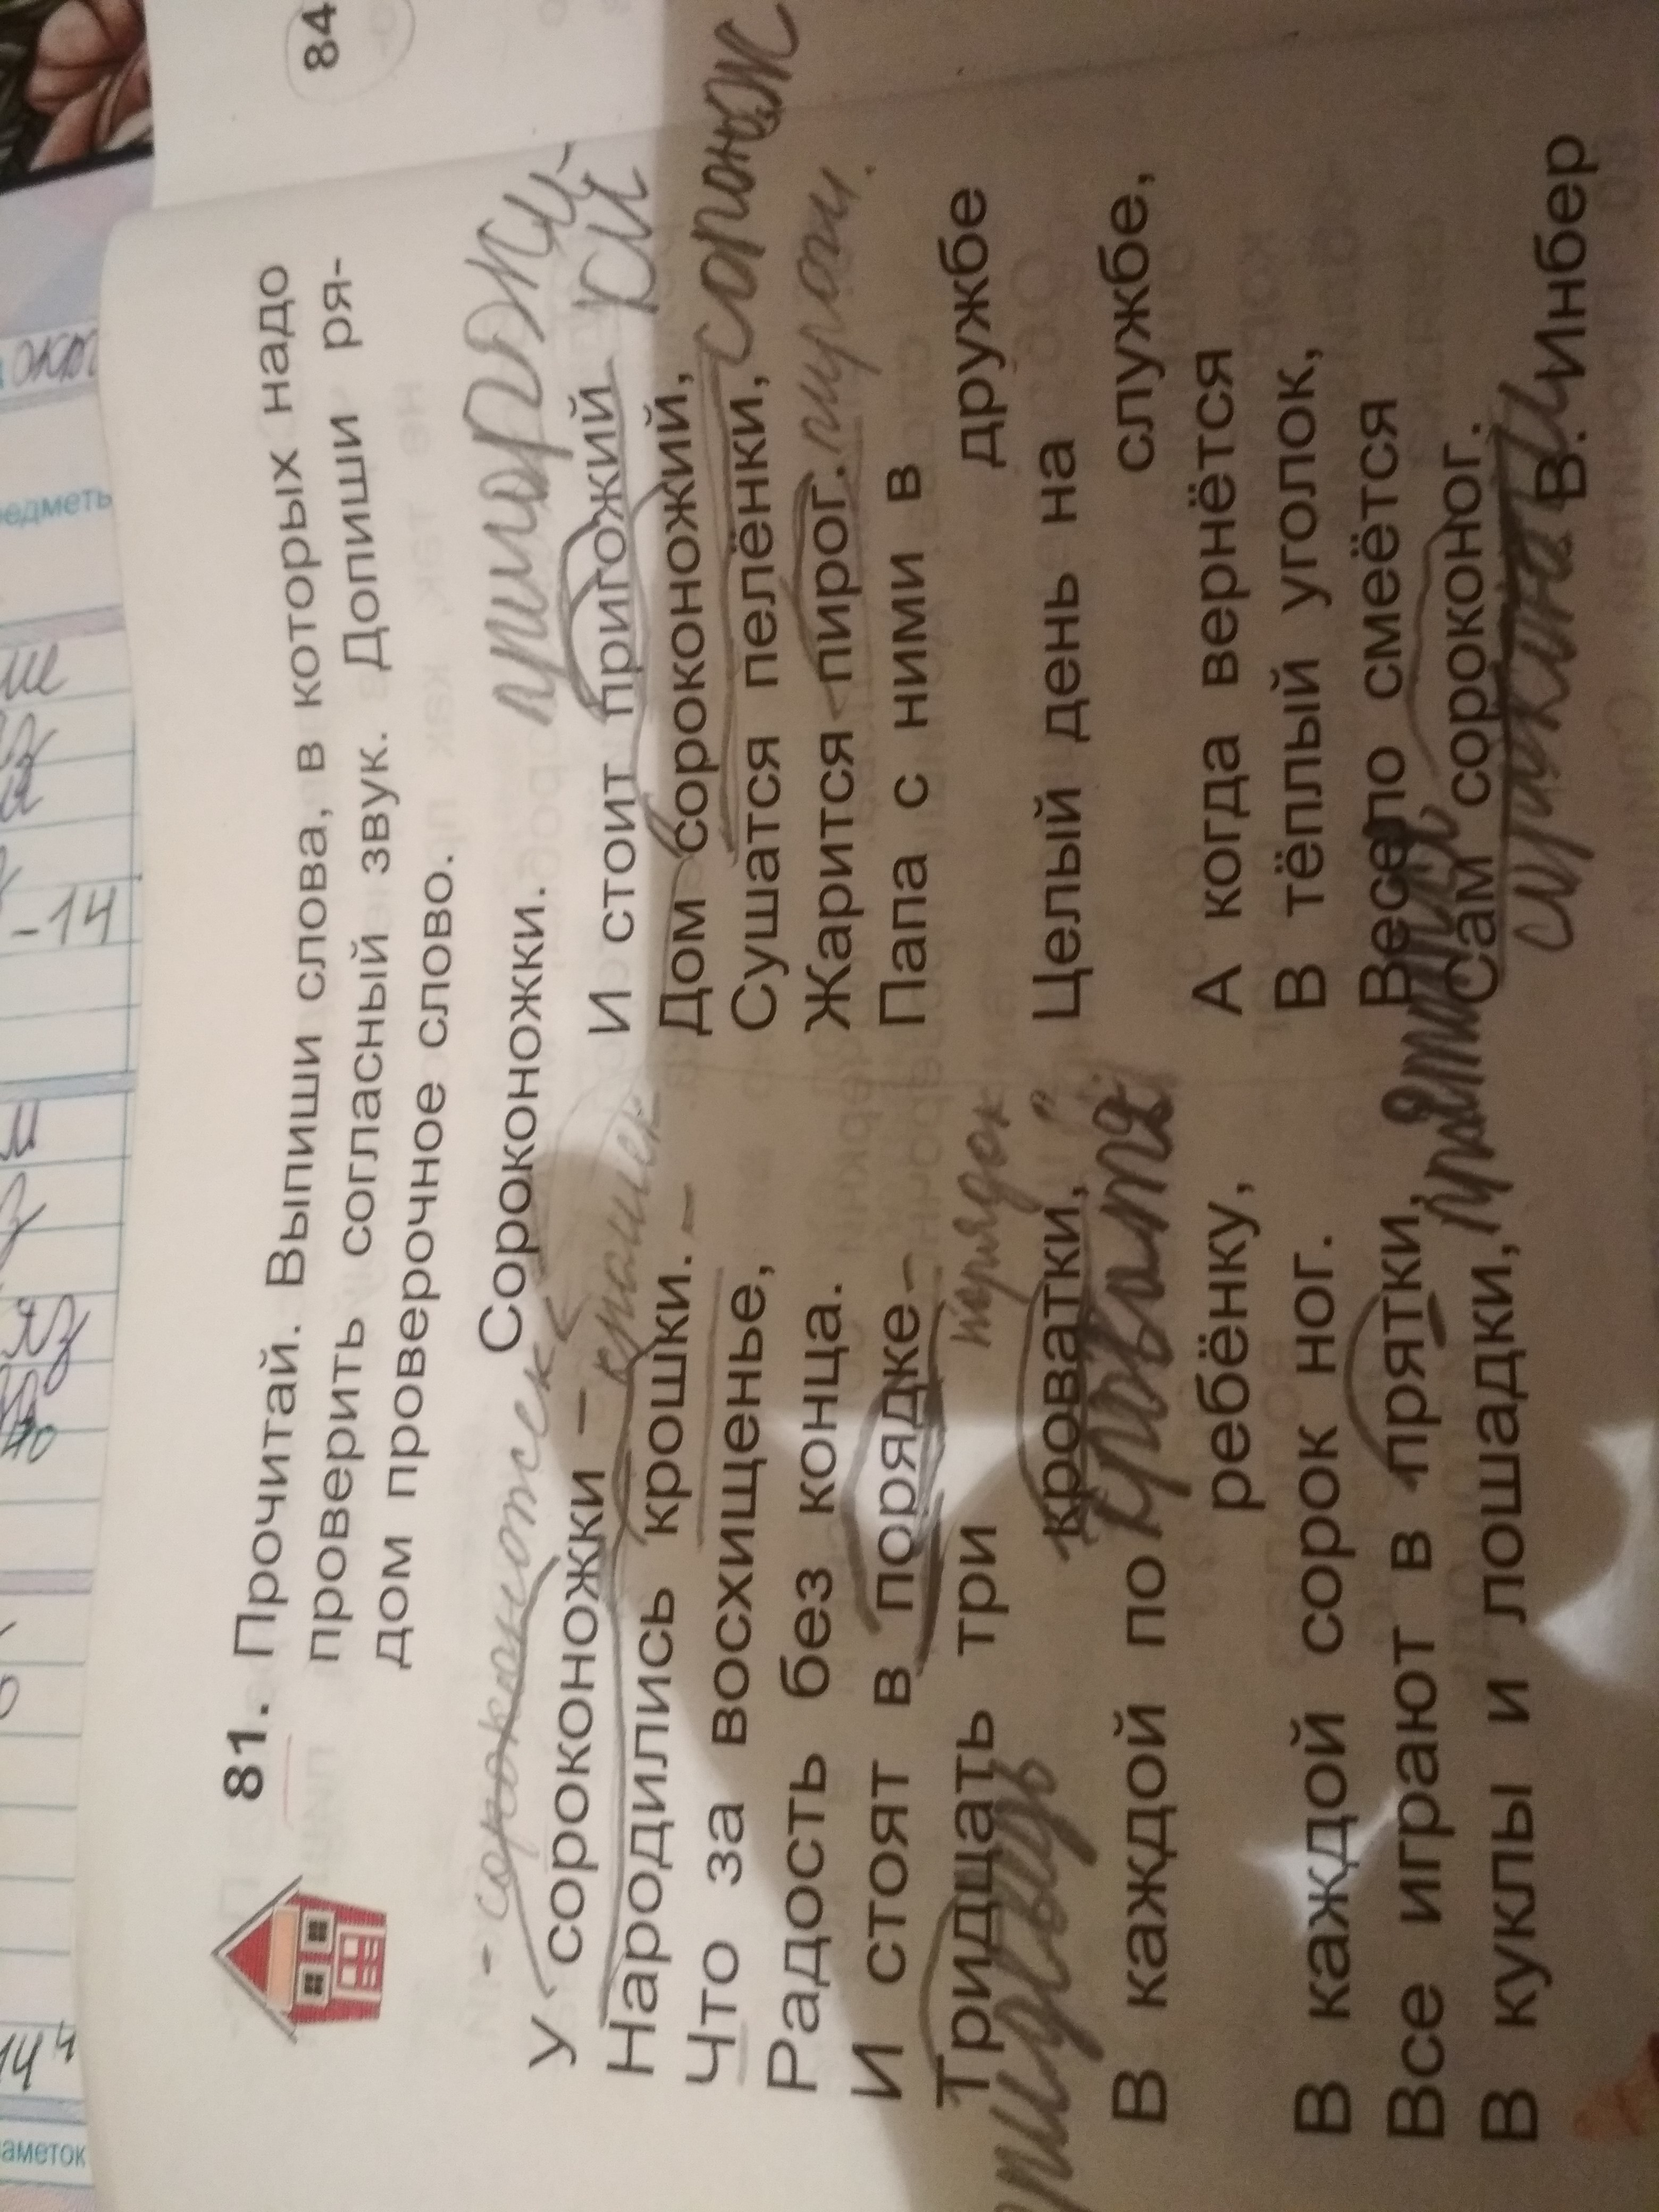 81. Прочитай. Выпиши слова, в которых надо
проверить согласный звук. Допиши ря-
дом проверочное слово.
Сороконожки.
- сороконожек
У сороконожки –
крошек
Народились крошки. –
Что за восхищенье,
Радость без конца.
И стоят в порядке –
порядок
Тридцать три
кроватки,
В каждой по кровать
ребёнку,
В каждой сорок ног.
Все играют в прятки,
В куклы и лошадки,
И стоит пригожий
Дом сороконожий,
Сушатся пелёнки,
Жарится пирог. пироги.
Папа с ними в
дружбе
Целый день на
службе,
А когда вернётся
В тёплый уголок,
Весело смеётся
Сам сороконог.
В. Инбер
84
едметь
-14
14
аметок